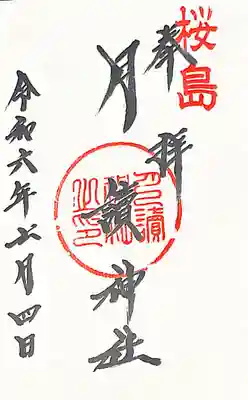 桜島
奉拝
月讀神社
月讀
神社
之印
令和六年七月四日